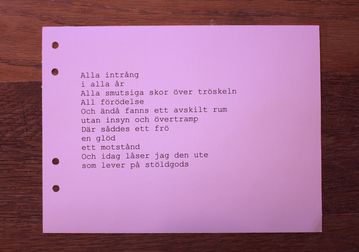 Alla intrång
i alla år
Alla smutsiga skor över tröskeln
All förödelse
Och ändå fanns ett avskilt rum
utan insyn och övertramp
Där såddes ett frö
en glöd
ett motstånd
Och idag låser jag den ute
som lever på stöldgods